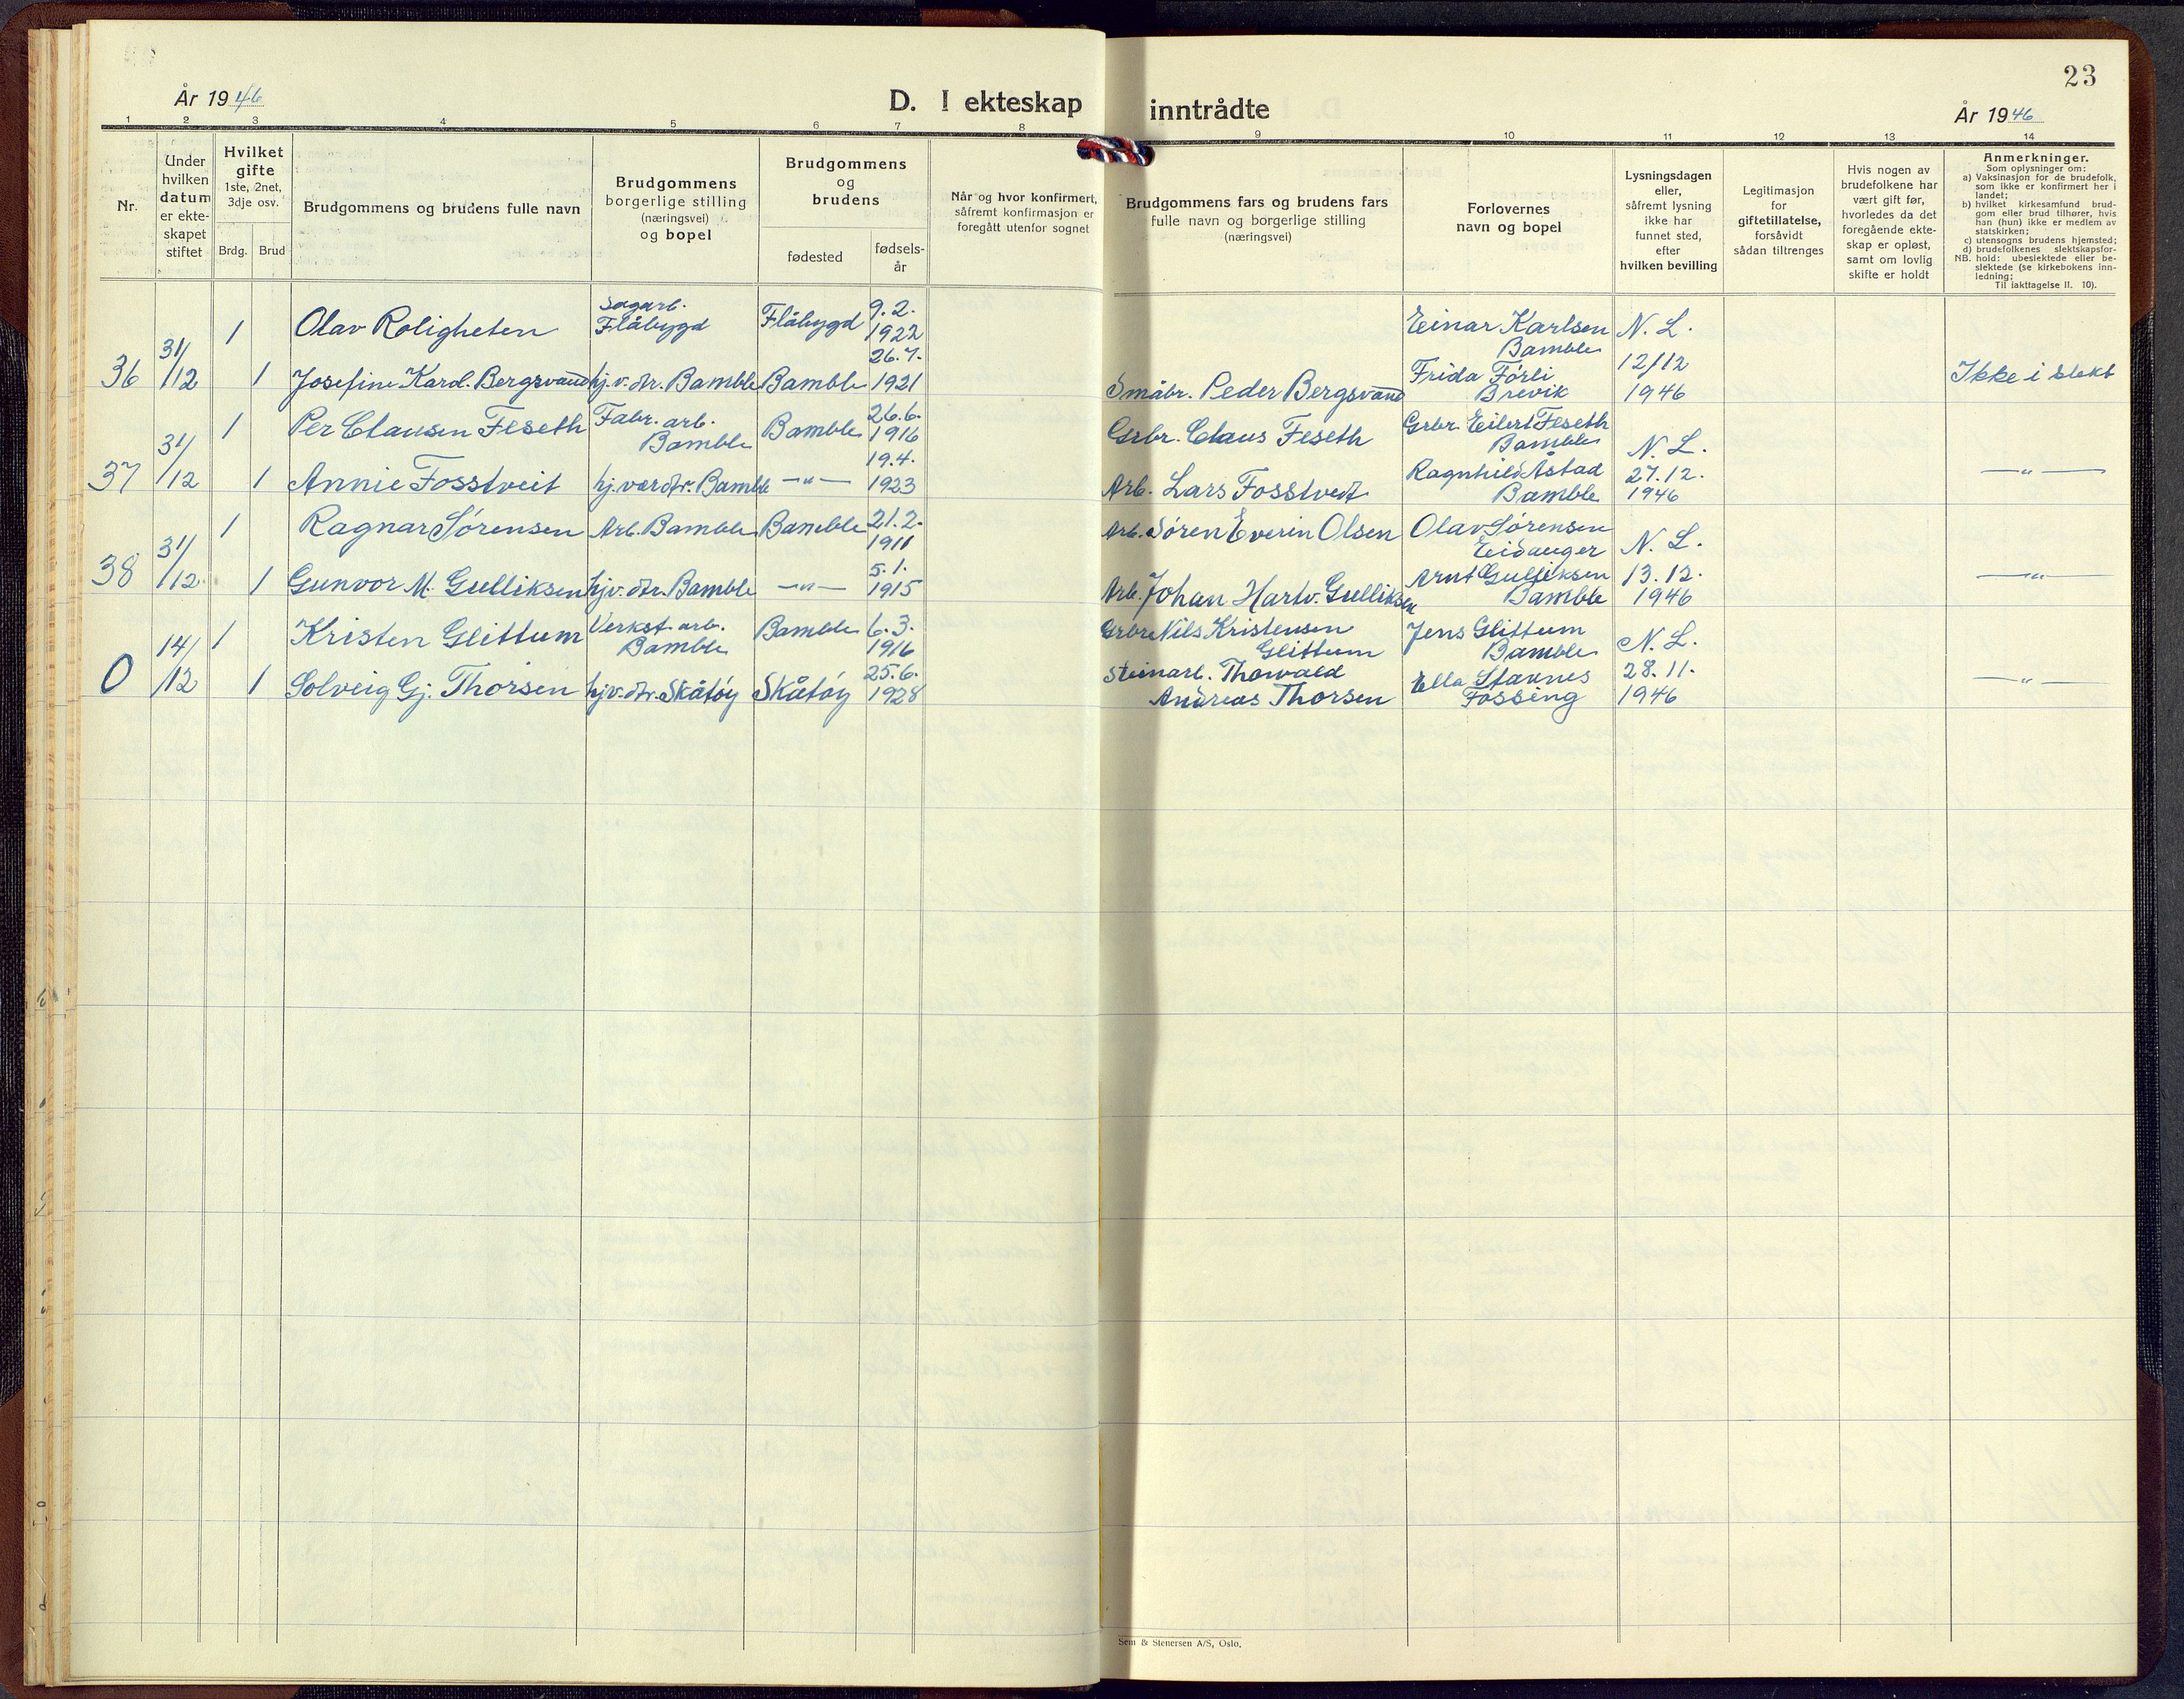 23
År 1946
D. I ekteskap inntrådte
År 1946
1 2 3 4 5 6 7 8 9 10 11 12 13 14
Nr.
Under
hvilken
datum
er ekte-
skapet
stiftet
Hvilket
gifte
1ste, 2net,
3dje osv.
Brdg. Brud
Brudgommens og brudens fulle navn
Brudgommens
borgerlige stilling
(næringsvei)
og bopel
Brudgommens
og
brudens
fødested
fødsels-
år
Når og hvor konfirmert,
såfremt konfirmasjon er
foregått utenfor sognet
Brudgommens fars og brudens fars
fulle navn og borgerlige stilling
(næringsvei)
Forlovernes
navn og bopel
Lysningsdagen
eller,
såfremt lysning
ikke har
funnet sted,
efter
hvilken bevilling
Legitimasjon
for
giftetillatelse,
forsåvidt
sådan tiltrenges
Hvis nogen av
brudefolkene har
vært gift før,
hvorledes da det
foregående ekte-
skap er opløst,
samt om lovlig
skifte er holdt
Anmerkninger.
Som oplysninger om:
a) Vaksinasjon for de brudefolk,
som ikke er konfirmert her i
landet;
b) hvilket kirkesamfund brud-
gom eller brud tilhører, hvis
han (hun) ikke er medlem av
statskirken;
c) utensogns brudens hjemsted;
d) brudefolkenes slektskapsfor-
NB. hold: ubeslektede eller be-
slektede (se kirkebokens inn-
ledning;
Til iakttagelse II. 10).
36
31/12
1
Olav Roligheten
Sagarb.
Flåbygd
Flåbygd
9.2.
1922
Einar Karlsen
Bamble
N. L.
1
Josefine Karol. Bergsvand
hj.v. dtr. Bamble
Bamble
26.7.
1921
Småbr. Peder Bergsvand
Frida Førli
Brevik
12/12
1946
Ikke i slekt
37
31/12
1
Per Clausen Feseth
Fabr. arb.
Bamble
Bamble
26.6.
1916
Grbr. Claus Feseth
Grbr. Eilert Feseth
Bamble
N. L.
1
Annie Fosstveit
hj.værdtr. Bamble
—"—
19.4.
1923
Arb. Lars Fosstvedt
Ragnhild Åstad
Bamble
27.12.
1946
—"—
38
31/12
1
Ragnar Sørensen
Arb. Bamble
Bamble
21.2.
1911
Arb. Søren Everin Olsen
Olav Sørensen
Eidanger
N. L.
1
Gunvor M. Gulliksen
hjv. dtr. Bamble
—"—
5.1.
1915
Arb. Johan Hartv. Gulliksen
Arnt Gulliksen
Bamble
13.12.
1946
—"—
0
14/12
1
Kristen Glittum
Verkst. arb.
Bamble
Bamble
6.3.
1916
Grbr. Nils Kristensen
Glittum
Jens Glittum
Bamble
N. L.
1
Solveig Gj. Thorsen
hjv. dtr. Skåtøy
Skåtøy
25.6.
1928
Steinarb. Thorvald
Andreas Thorsen
Ella Stavnes
Fossing
28.11.
1946
—"—
Sem & Stenersen A/S, Oslo.